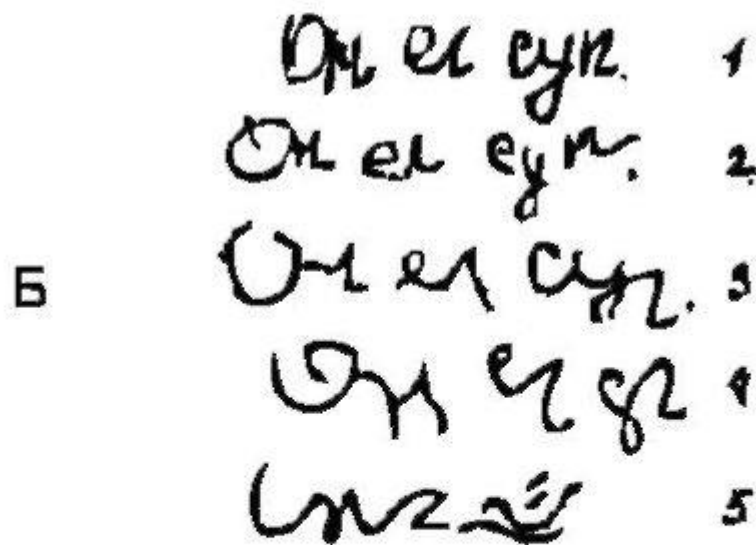 Он ел суп. 1
Он ел суп. 2.
Б Он ел суп. 3
Он 4
5